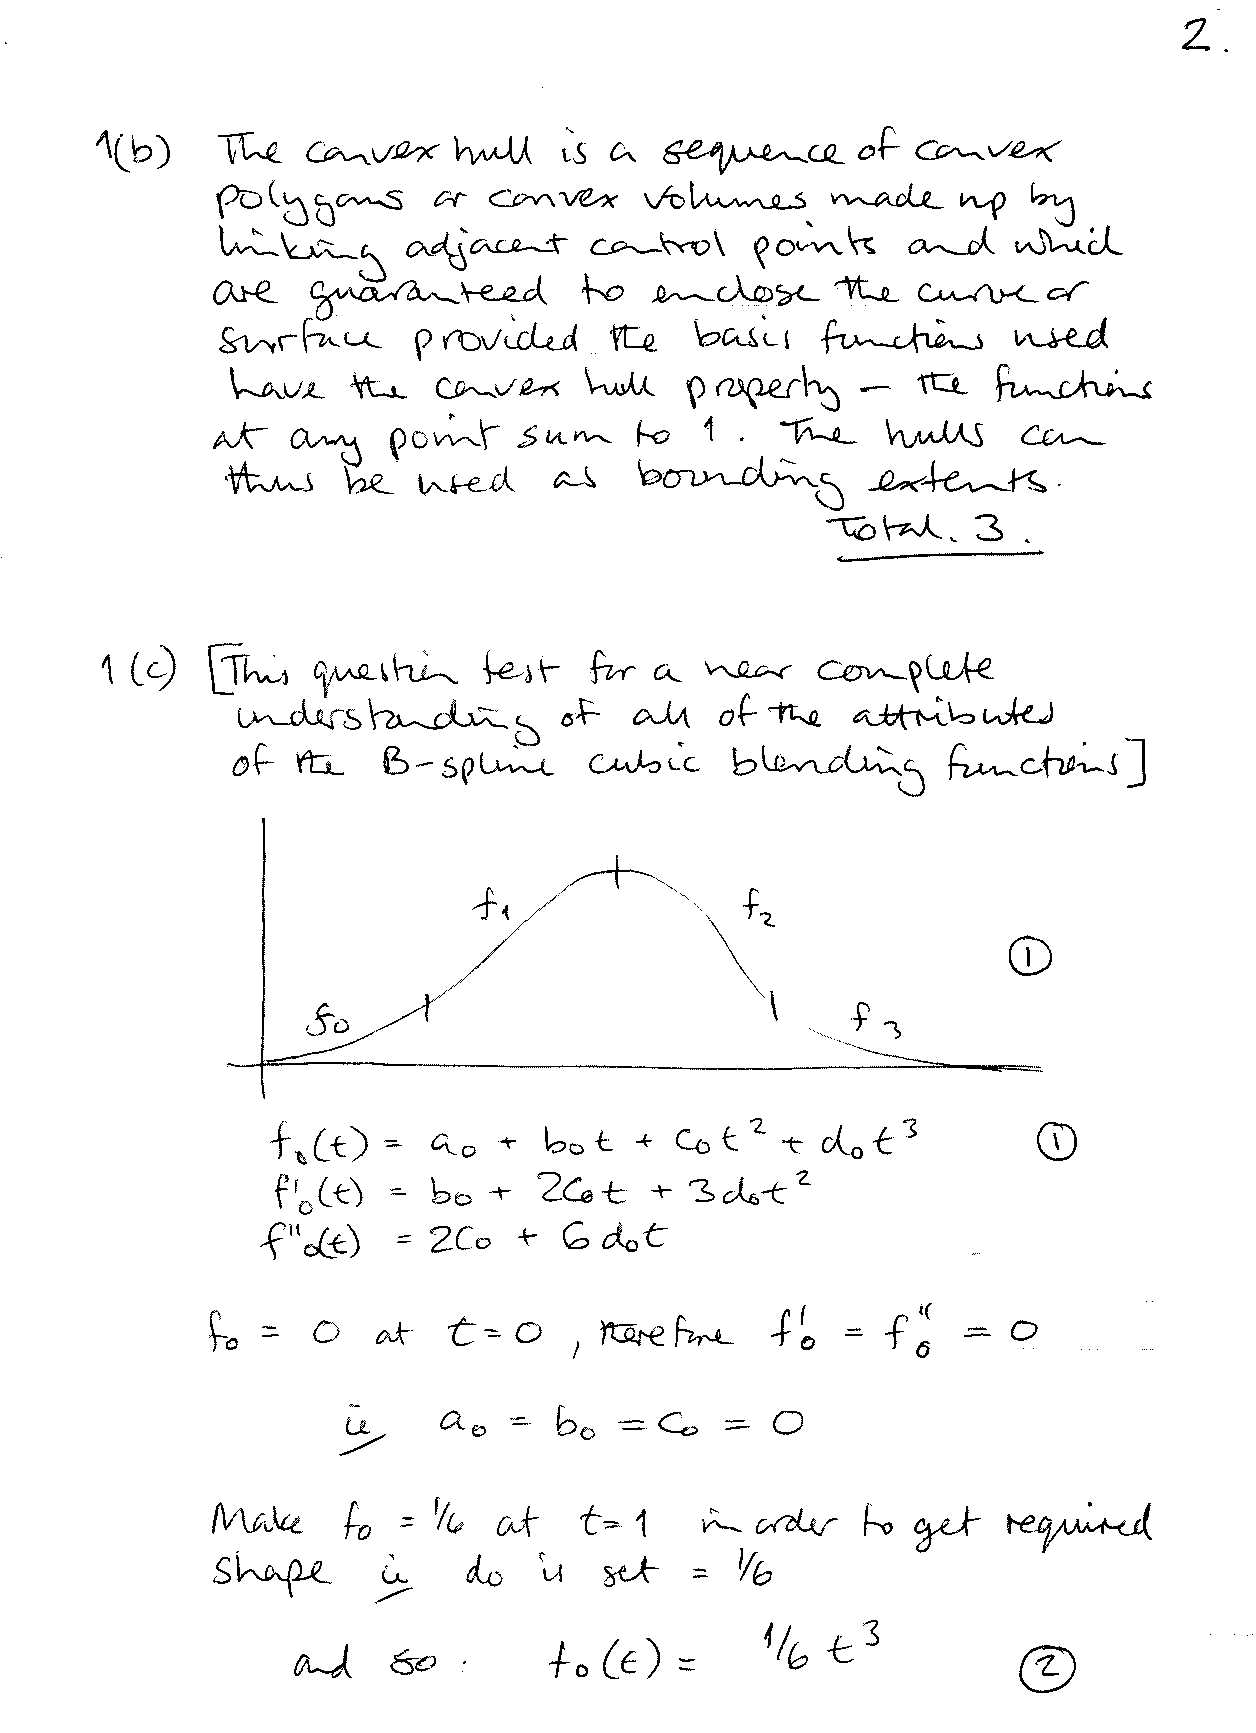 2.
1(b) The convex hull is a sequence of convex
polygons or convex volumes made up by
linking adjacent control points and which
are guaranteed to enclose the curve or
surface provided the basis functions used
have the convex hull property - the functions
at any point sum to 1. The hulls can
thus be used as bounding extents.
Total. 3.
1(c) [This question test for a near complete
understanding of all of the attributes
of the B-spline cubic blending functions]
f₁ f₂
①
f₀ f₃
f₀(t) = a₀ + b₀t + c₀t² + d₀t³ ①
f'₀(t) = b₀ + 2c₀t + 3d₀t²
f"₀(t) = 2c₀ + 6d₀t
f₀ = 0 at t=0, therefore f'₀ = f"₀ = 0
ie a₀ = b₀ = c₀ = 0
Make f₀ = 1/6 at t=1 in order to get required
shape ie d₀ is set = 1/6
and so: f₀(t) = 1/6 t³ ②